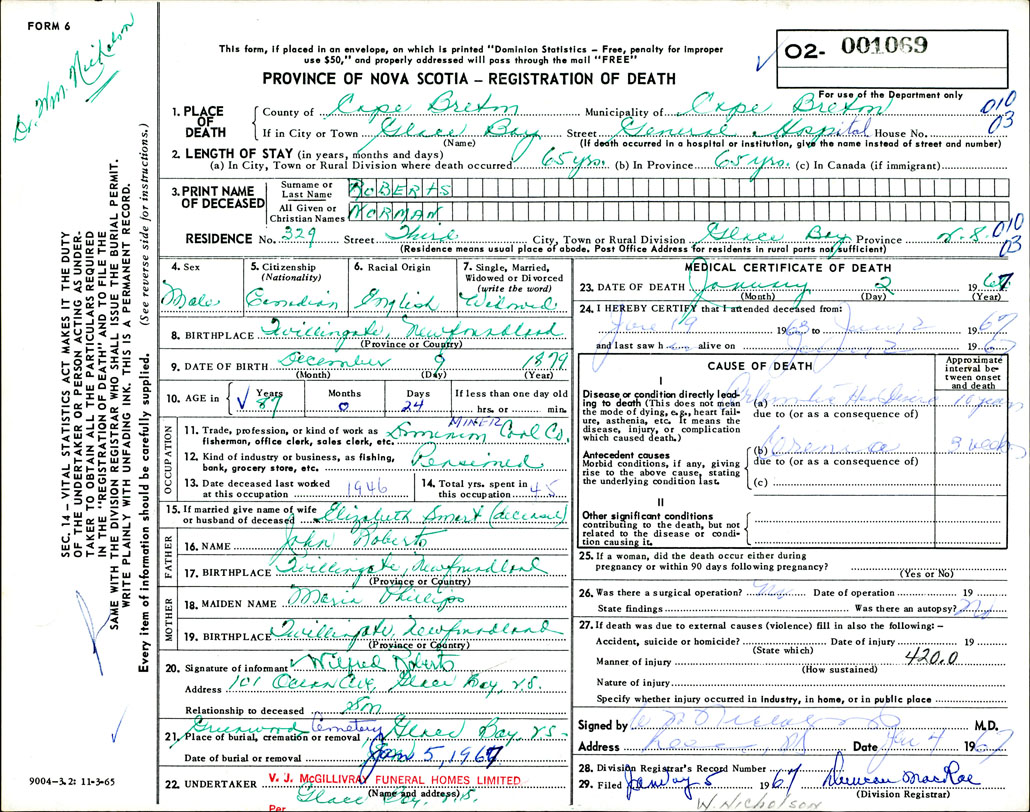 FORM 6
Dr. Wm. Nicholson
This form, if placed in an envelope, on which is printed "Dominion Statistics – Free, penalty for improper
use $50," and properly addressed will pass through the mail "FREE"
PROVINCE OF NOVA SCOTIA – REGISTRATION OF DEATH
O2- 001069
For use of the Department only
010
03
1. PLACE OF DEATH
County of Cape Breton Municipality of Cape Breton
If in City or Town Glace Bay Street General Hospital House No.
(Name) (If death occurred in a hospital or institution, give the name instead of street and number)
2. LENGTH OF STAY (in years, months and days)
(a) In City, Town or Rural Division where death occurred 65 yrs. (b) In Province 65 yrs. (c) In Canada (if immigrant)
3. PRINT NAME OF DECEASED
Surname or Last Name ROBERTS
All Given or Christian Names NORMAN
010
03
RESIDENCE No. 329 Street Third City, Town or Rural Division Glace Bay Province N.S.
(Residence means usual place of abode. Post Office Address for residents in rural parts not sufficient)
4. Sex
Male
5. Citizenship
(Nationality)
Canadian
6. Racial Origin
English
7. Single, Married,
Widowed or Divorced
(write the word)
Widowed
8. BIRTHPLACE Twillingate, Newfoundland
(Province or Country)
9. DATE OF BIRTH December 9 1879
(Month) (Day) (Year)
10. AGE in Years 87 Months 0 Days 24 If less than one day
hrs. or min.
OCCUPATION
MINER
11. Trade, profession, or kind of work as Dominion Coal Co.
fisherman, office clerk, sales clerk, etc.
12. Kind of industry or business, as fishing, Pensioned
bank, grocery store, etc.
13. Date deceased last worked
at this occupation 1946
14. Total yrs. spent in
this occupation 45
15. If married give name of wife
or husband of deceased Elizabeth Smart (deceased)
FATHER
16. NAME John Roberts
17. BIRTHPLACE Twillingate, Newfoundland
(Province or Country)
MOTHER
18. MAIDEN NAME Maria Phillips
19. BIRTHPLACE Twillingate, Newfoundland
(Province or Country)
20. Signature of informant Wilfred Roberts
Address 101 Ocean Ave, Glace Bay, N.S.
Relationship to deceased Son
Greenwood Cemetery Glace Bay NS
21. Place of burial, cremation or removal
Date of burial or removal Jan 5, 1967
22. UNDERTAKER V. J. McGILLIVRAY FUNERAL HOMES LIMITED
(Name and address)
Glace Bay, N.S.
Per
MEDICAL CERTIFICATE OF DEATH
23. DATE OF DEATH January 2 1967
(Month) (Day) (Year)
24. I HEREBY CERTIFY that I attended deceased from:
June 19 1963 to Jan 2 1967
and last saw him alive on Jan 2 1967
CAUSE OF DEATH
Approximate
interval be-
tween onset
and death
I
Disease or condition directly lead-
ing to death (This does not mean
the mode of dying, e.g., heart fail-
ure, asthenia, etc. It means the
disease, injury, or complication
which caused death.)
(a) Heart Disease 10 years
due to (or as a consequence of)
Antecedent causes
Morbid conditions, if any, giving
rise to the above cause, stating
the underlying condition last.
(b) Uremia 3 weeks
due to (or as a consequence of)
(c)
II
Other significant conditions
contributing to the death, but not
related to the disease or condi-
tion causing it.
25. If a woman, did the death occur either during
pregnancy or within 90 days following pregnancy?
(Yes or No)
26. Was there a surgical operation? No Date of operation 19
State findings Was there an autopsy? No
27. If death was due to external causes (violence) fill in also the following: –
Accident, suicide or homicide? Date of injury 19
(State which)
Manner of injury 420.0
(How sustained)
Nature of injury
Specify whether injury occurred in industry, in home, or in public place
Signed by M.D.
Address Date Jan 4 1967
28. Division Registrar's Record Number
29. Filed January 5 1967 Duncan MacRae
(Division Registrar)
W. Nicholson
SEC. 14 – VITAL STATISTICS ACT MAKES IT THE DUTY
OF THE UNDERTAKER OR PERSON ACTING AS UNDER-
TAKER TO OBTAIN ALL THE PARTICULARS REQUIRED
IN THE "REGISTRATION OF DEATH" AND TO FILE THE
SAME WITH THE DIVISION REGISTRAR WHO SHALL ISSUE THE BURIAL PERMIT.
WRITE PLAINLY WITH UNFADING INK. THIS IS A PERMANENT RECORD.
Every item of information should be carefully supplied. (See reverse side for instructions.)
9004–3.2: 11-3-65